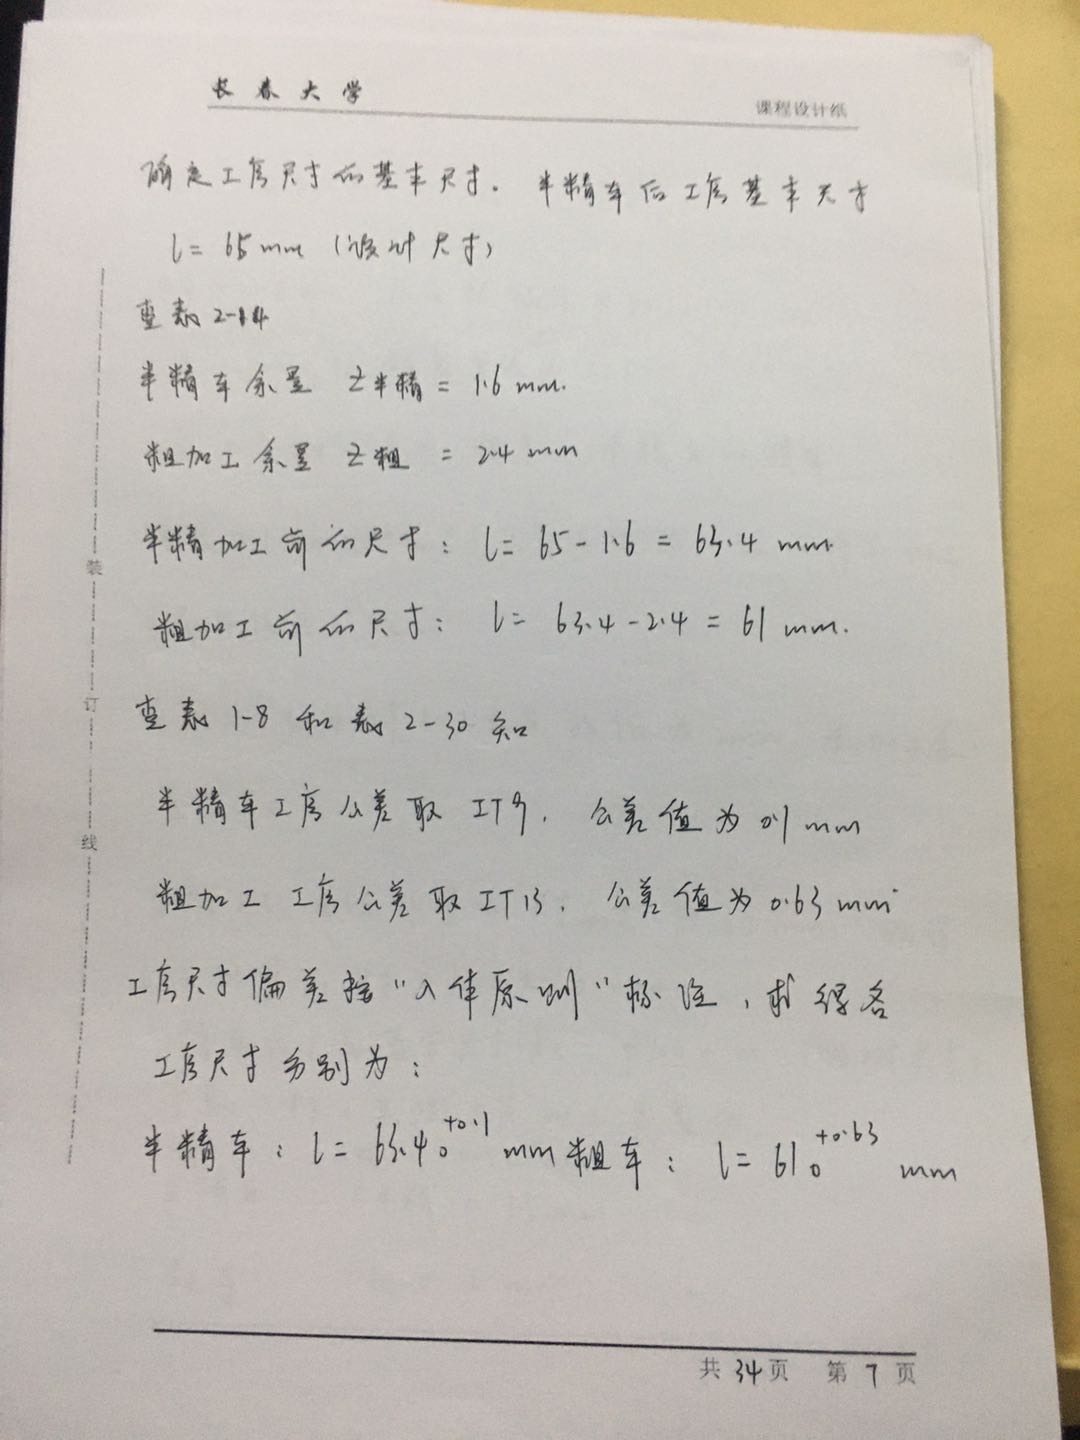 长春大学
课程设计纸
确定工序尺寸的基本尺寸。半精车后工序基本尺寸
l= 65mm (设计尺寸)
查表2-14
半精车余量 Z半精 = 1.6 mm.
粗加工余量 Z粗 = 2.4 mm
半精加工前的尺寸: l= 65-1.6 = 63.4 mm.
粗加工前的尺寸: l= 63.4-2.4 = 61 mm.
查表1-8和表2-30知
半精车工序公差取IT9, 公差值为0.1mm
粗加工工序公差取IT13, 公差值为0.63mm
工序尺寸偏差按“入体原则”标注,求得各
工序尺寸分别为:
半精车: l= 63.4 +0.1 0 mm 粗车: l= 61 +0.63 0 mm
装
订
线
共34页 第7页